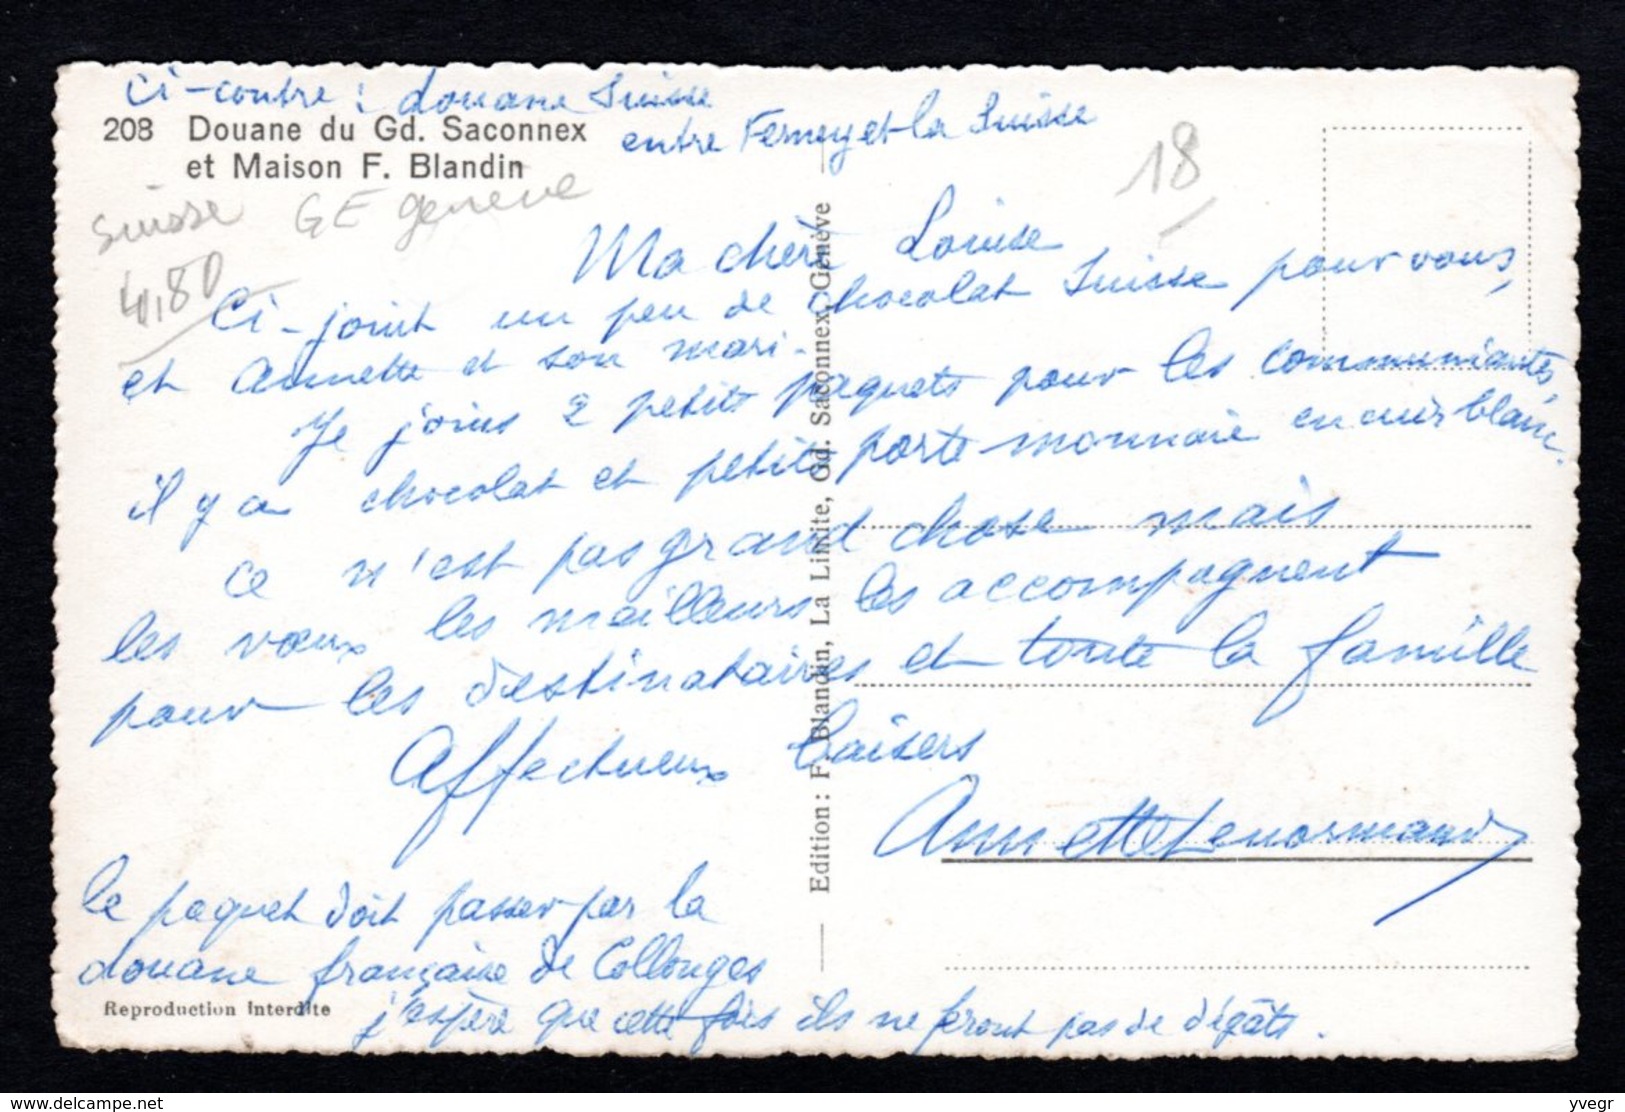 Ci-contre : douane Suisse
entre Ferney et la Suisse
208 Douane du Gd. Saconnex
et Maison F. Blandin
Suisse GE genève
4,80
18
Ma chère Louise
Ci-joint un peu de chocolat Suisse pour vous,
et Annette et son mari.
Je joins 2 petits paquets pour les communiantes,
il y a chocolat et petits porte monnaie en cuir blanc.
ce n'est pas grand chose mais
les vœux les meilleurs les accompagnent
pour les destinataires et toute la famille
Affectueux baisers
Annette Lenormand
le paquet doit passer par la
douane française de Collonges
j'espère que cette fois ils ne feront pas de dégâts.
Reproduction Interdite
Edition : F. Blandin, La Limite, Gd. Saconnex, Genève
delcampe.net
yvegr